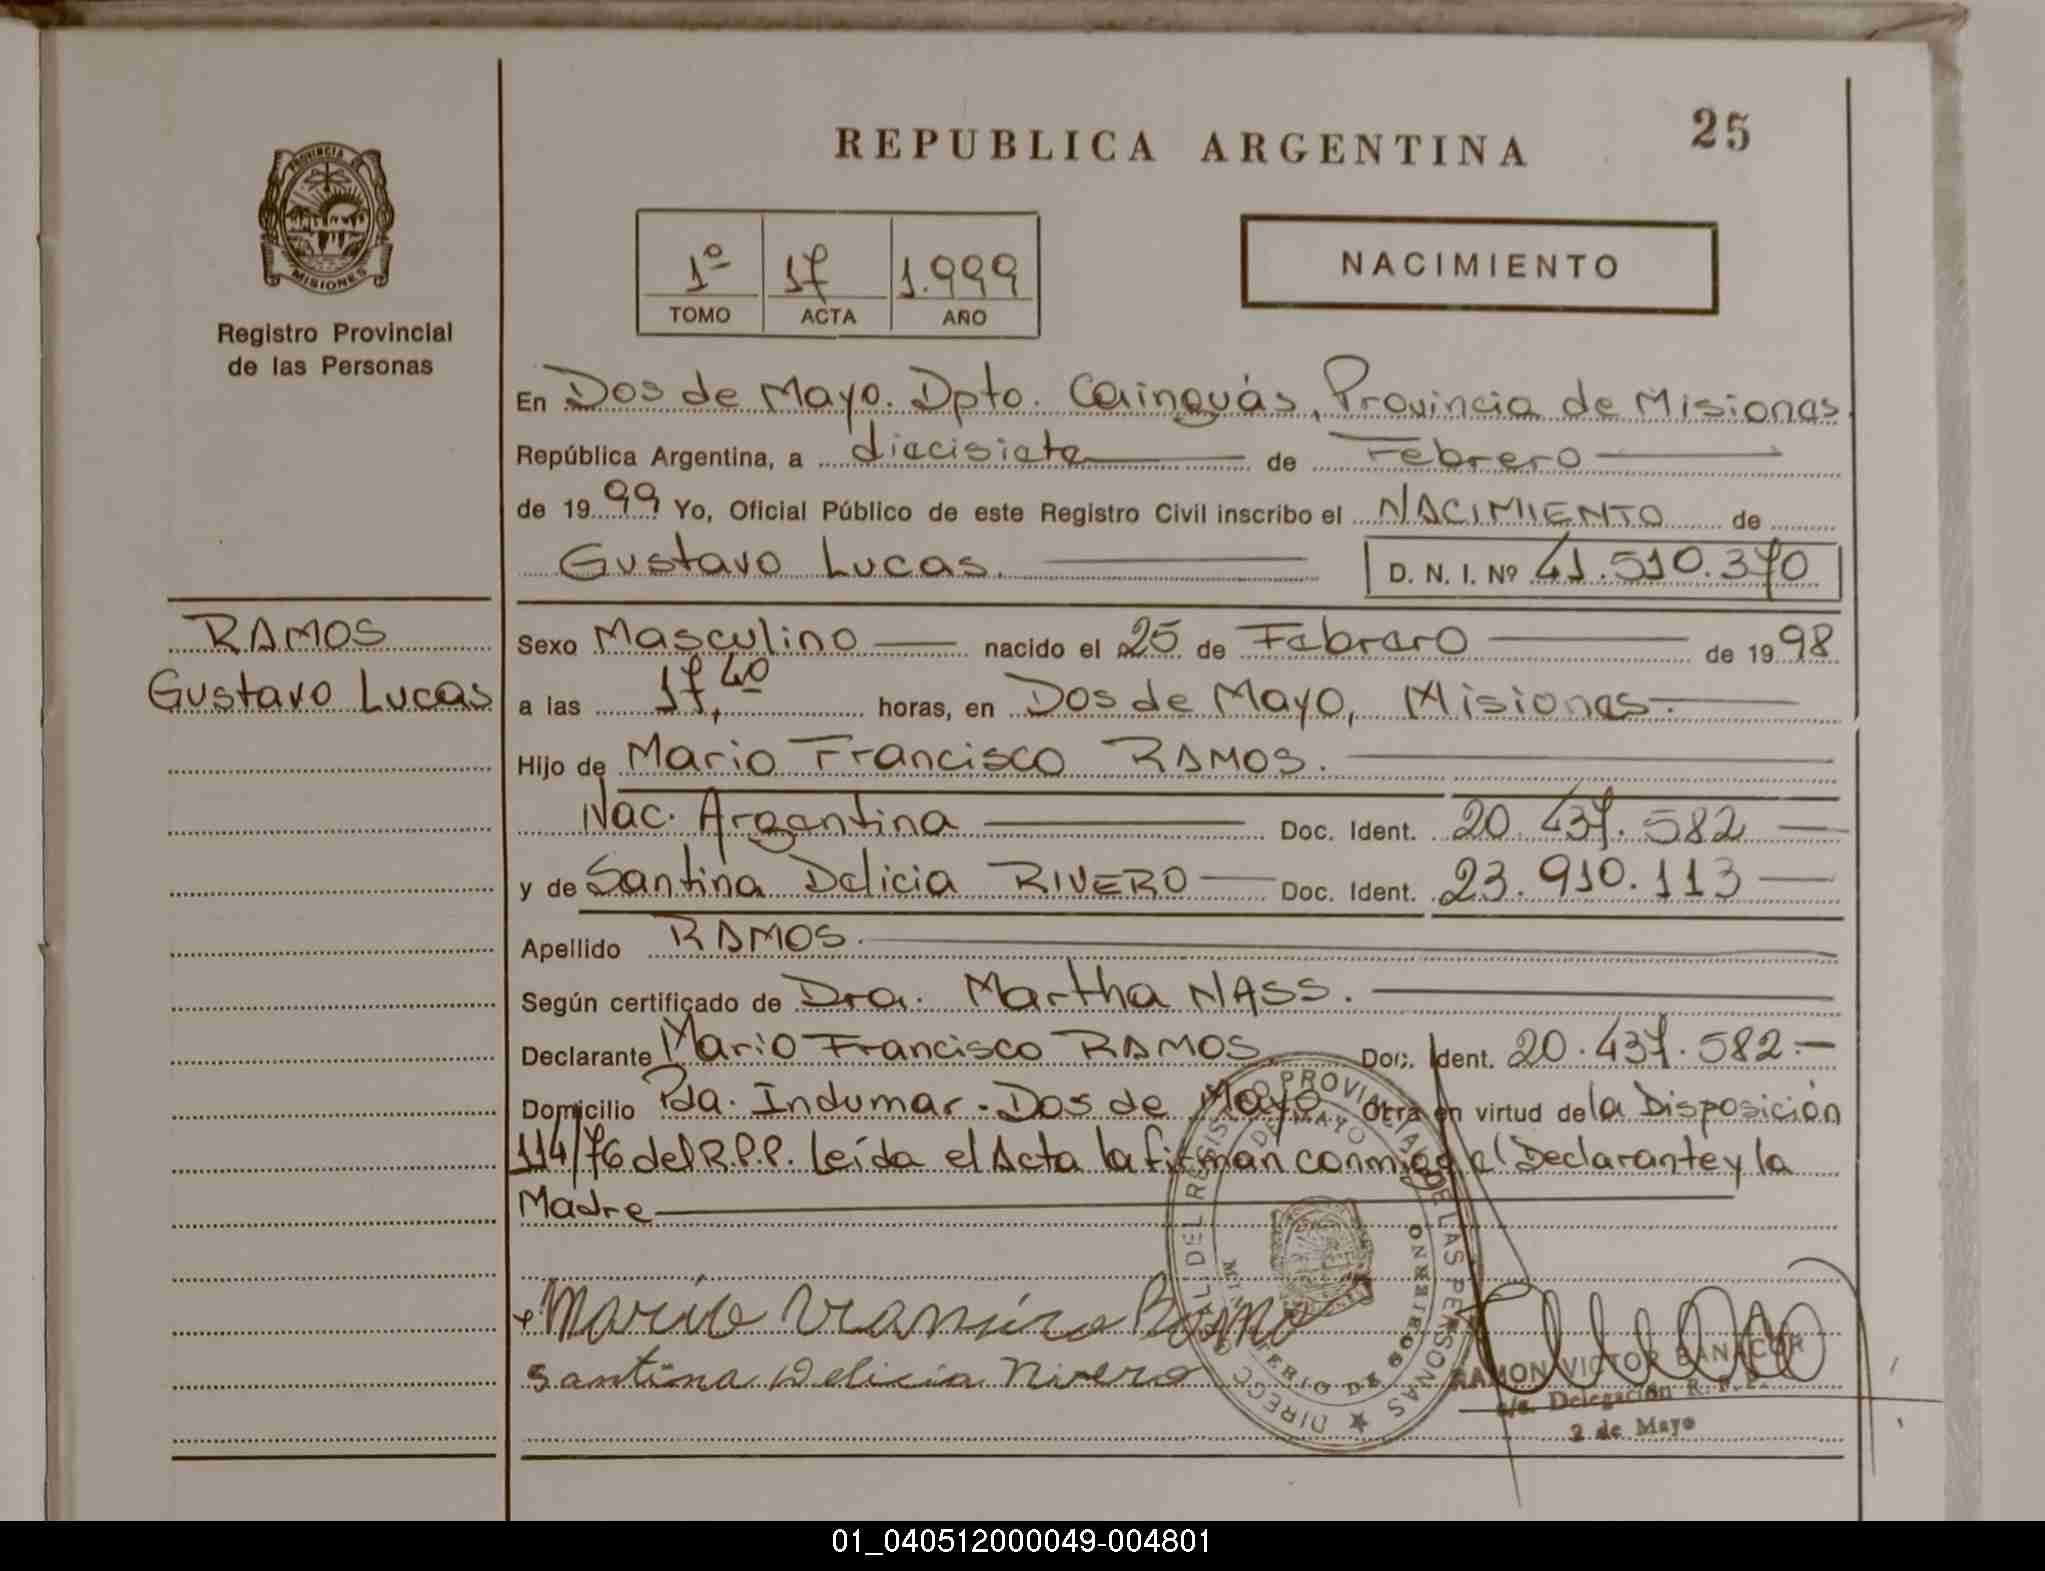 REPUBLICA ARGENTINA
25
PROVINCIA DE
MISIONES
Registro Provincial
de las Personas
1º 17 1.999
TOMO ACTA AÑO
NACIMIENTO
En Dos de Mayo. Dpto. Cainguás, Provincia de Misiones.
República Argentina, a diecisiete de Febrero
de 1999 Yo, Oficial Público de este Registro Civil inscribo el NACIMIENTO de
Gustavo Lucas. D. N. I. Nº 41.510.370
RAMOS
Gustavo Lucas
Sexo Masculino nacido el 25 de Febrero de 1998
a las 17,40 horas, en Dos de Mayo, Misiones.
Hijo de Mario Francisco RAMOS.
Nac. Argentina Doc. Ident. 20.437.582
y de Santina Delicia RIVERO Doc. Ident. 23.910.113
Apellido RAMOS.
Según certificado de Dra. Martha NASS.
Declarante Mario Francisco RAMOS Doc. Ident. 20.437.582.-
Domicilio Pda. Indumar - Dos de Mayo Obra en virtud de la Disposición
114/76 del R.P.P. Leída el Acta la firman conmigo el Declarante y la
Madre
Santina Delicia Rivero
DIRECC. DEL REGISTRO PROVINCIAL DE LAS PERSONAS
DE MAYO
MINISTERIO DE GOBIERNO
RAMON VICTOR BANACOR
a/c. Delegación R. P. P.
2 de Mayo
01_040512000049-004801